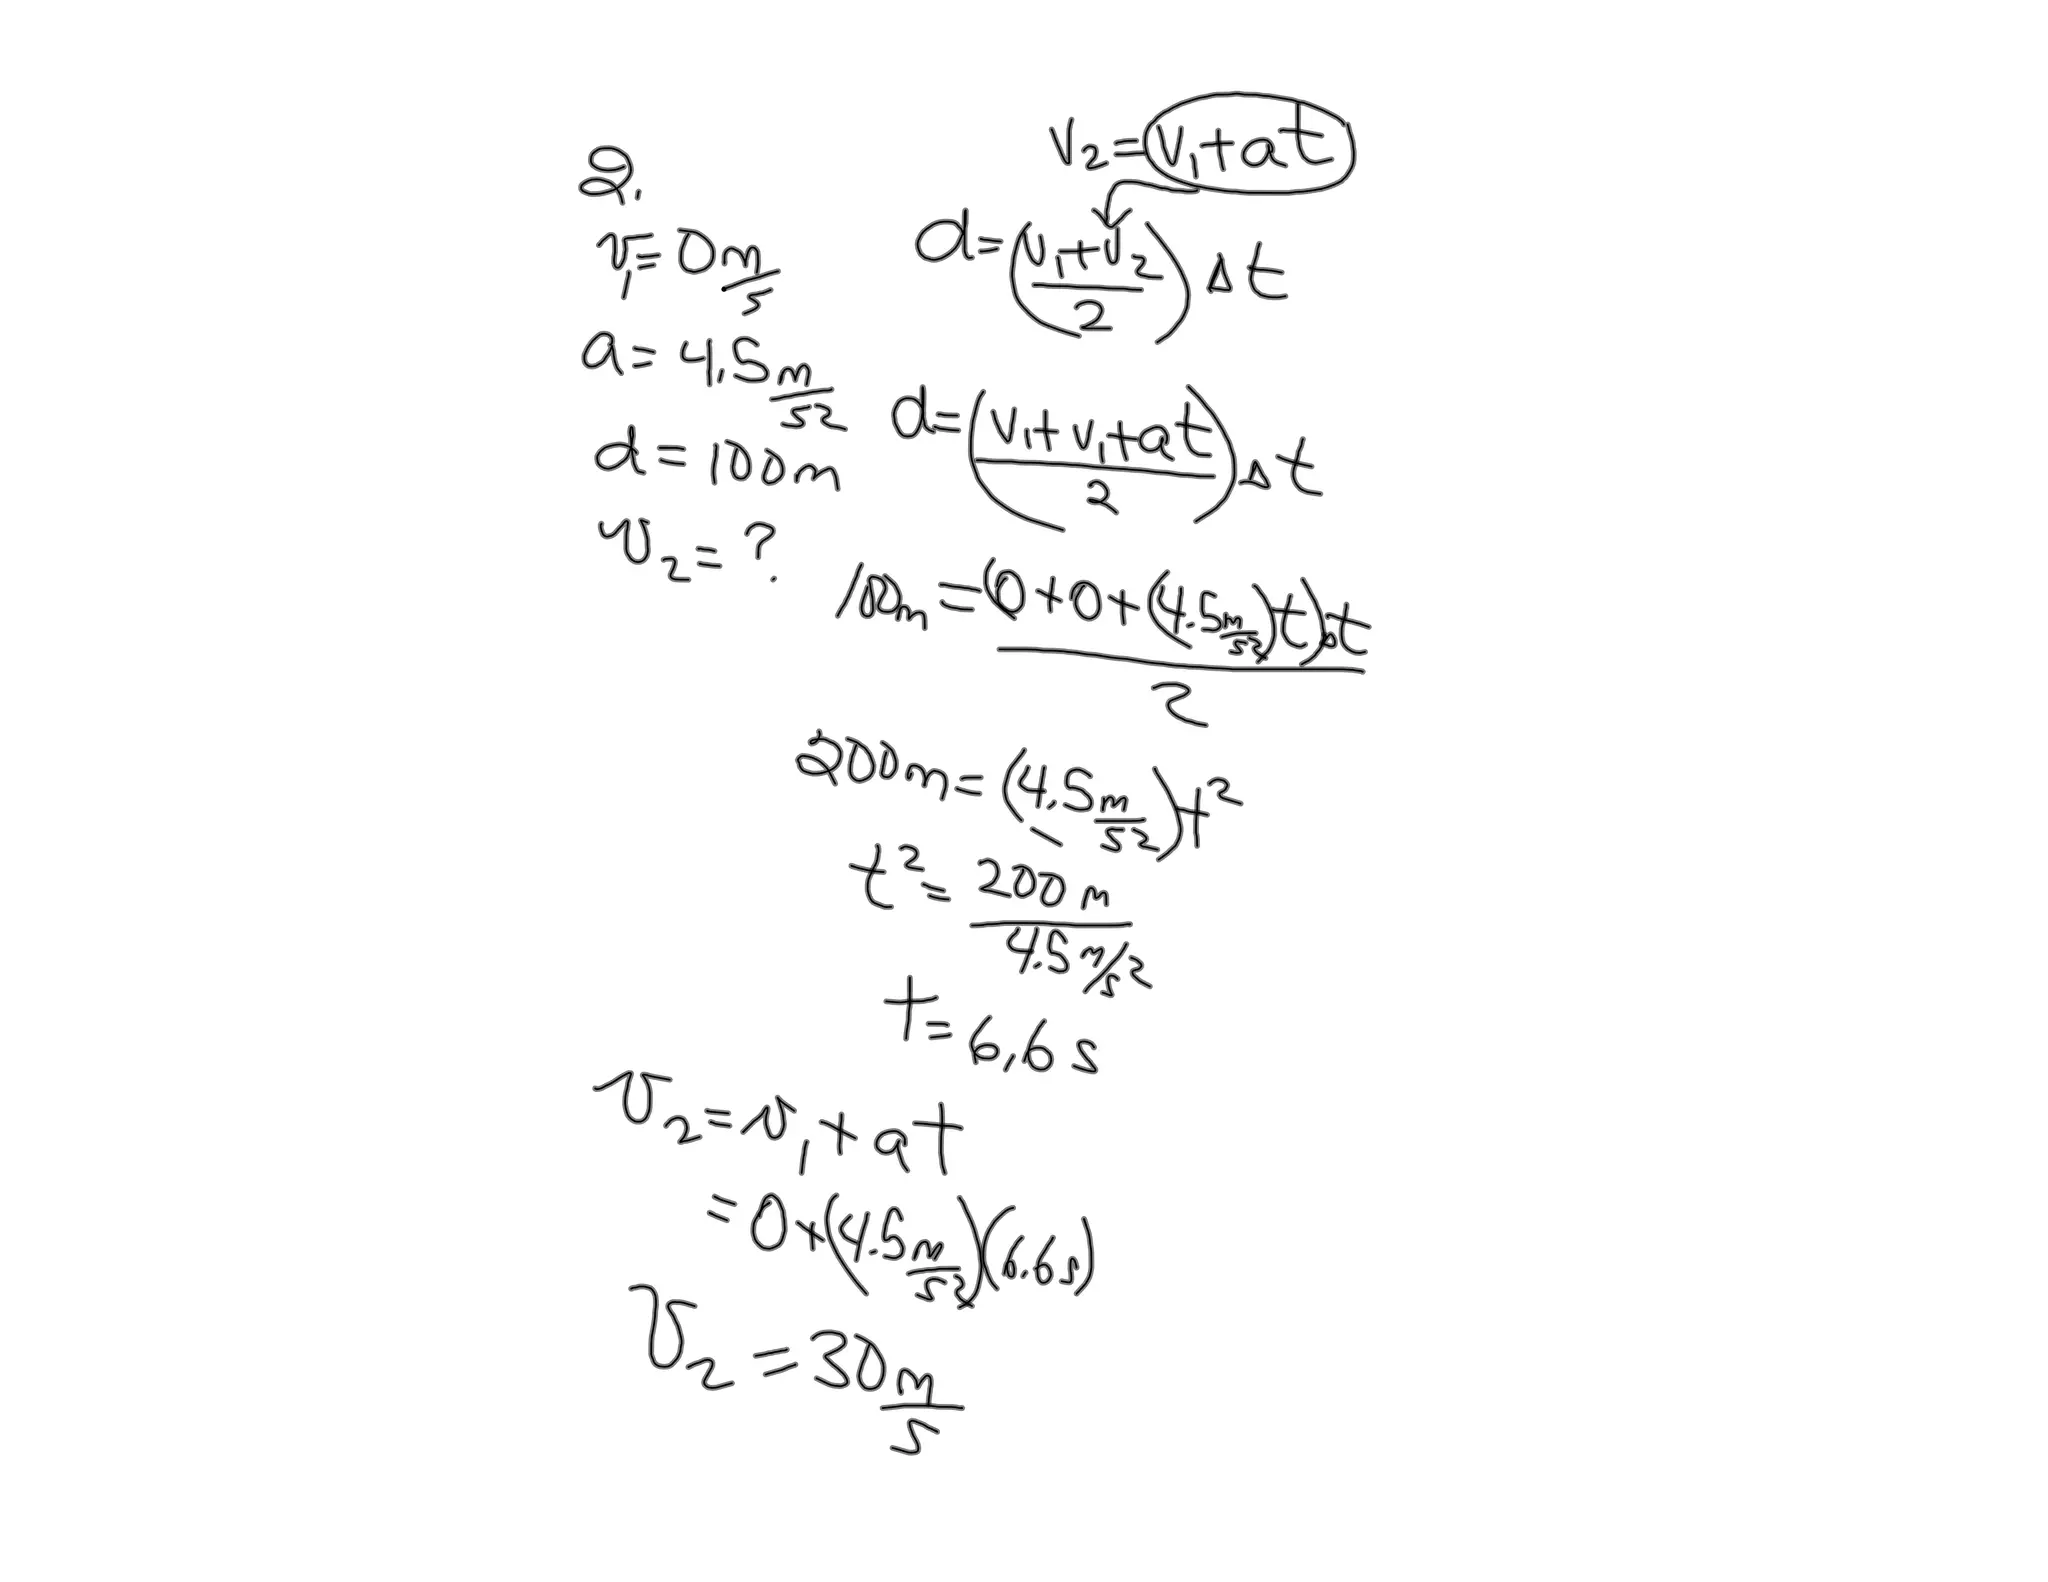 2.
v₁ = 0 m/s
a = 4.5 m/s²
d = 100m
v₂ = ?
v₂ = v₁ + at
d = ((v₁ + v₂)/2) Δt
d = ((v₁ + v₁ + at)/2) Δt
100m = (0 + 0 + (4.5 m/s²)t)Δt / 2
200m = (4.5 m/s²)t²
t² = 200 m / 4.5 m/s²
t = 6.6 s
v₂ = v₁ + at
= 0 + (4.5 m/s²)(6.6 s)
v₂ = 30 m/s